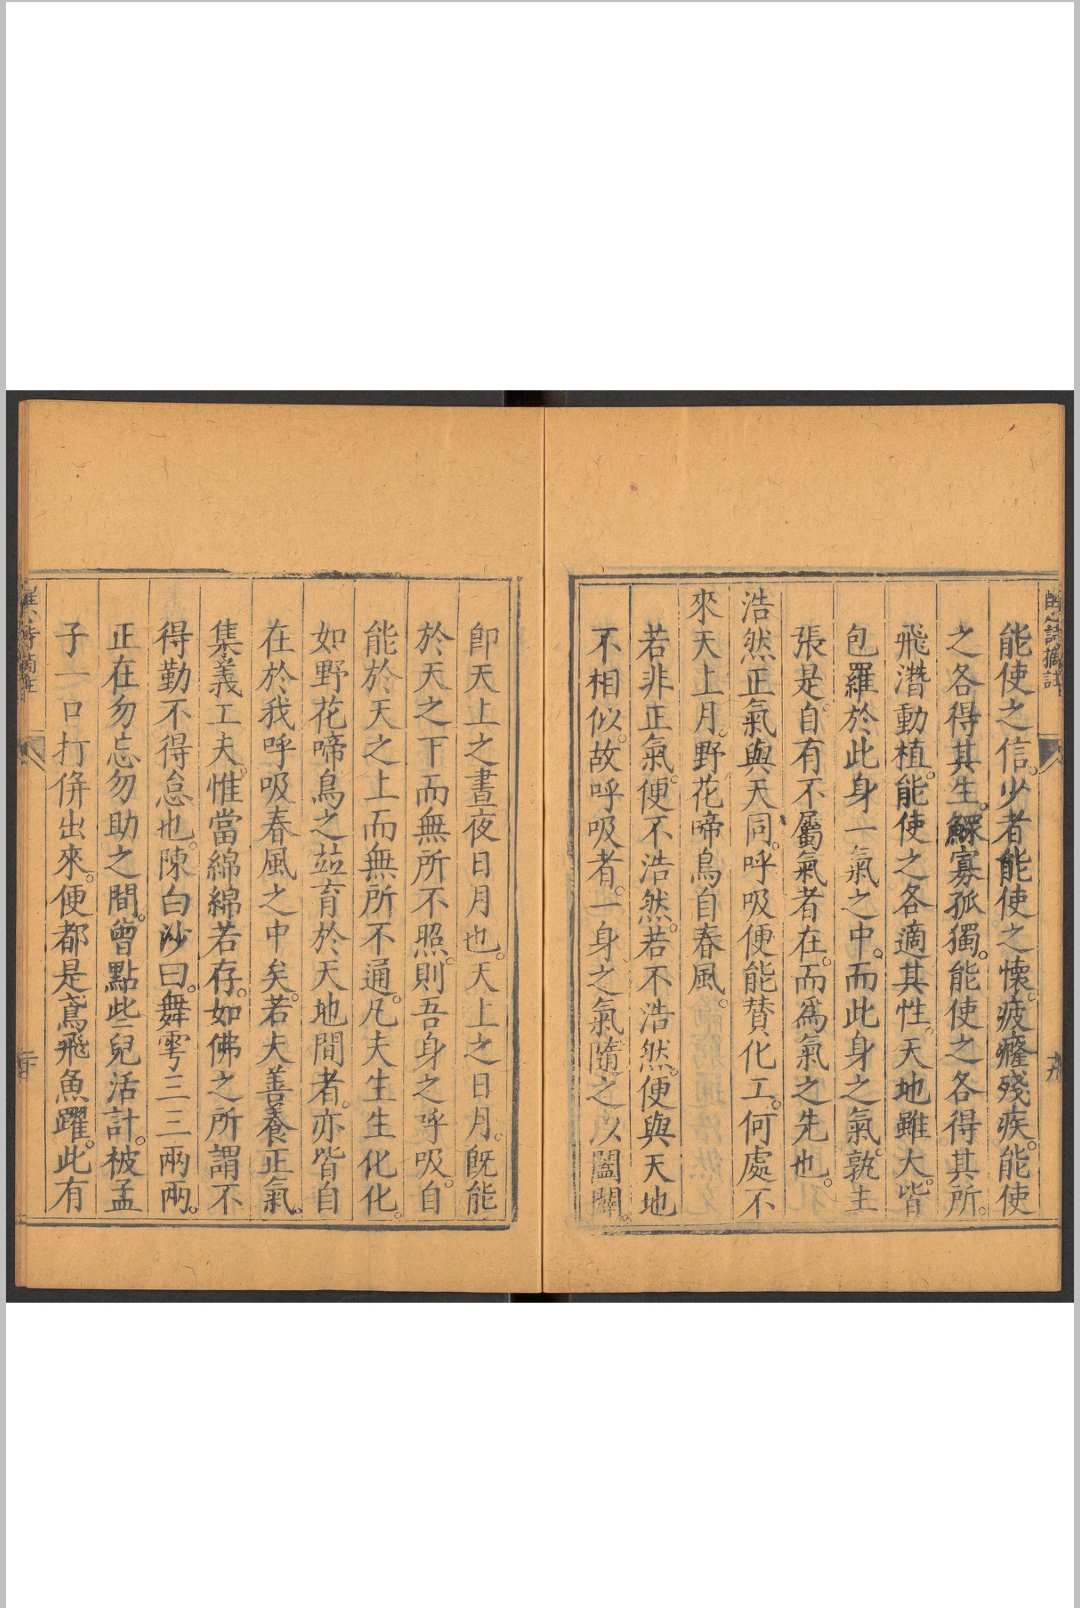 詩摘註
能使之信。少者能使之懷。疲癃殘疾。能使
之各得其生。鰥寡孤獨。能使之各得其所。
飛潛動植。能使之各適其性。天地雖大。皆
包羅於此身一氣之中。而此身之氣。孰主
張是。自有不屬氣者在。而爲氣之先也。
浩然正氣與天同。呼吸便能贊化工。何處不
來天上月。野花啼鳥自春風。
若非正氣。便不浩然。若不浩然。便與天地
不相似。故呼吸者。一身之氣隨之以闔闢。
卽天上之晝夜日月也。天上之日月。旣能
於天之下而無所不照。則吾身之呼吸。自
能於天之上而無所不通。凡夫生生化化。
如野花啼鳥之竝育於天地間者。亦皆自
在於我呼吸春風之中矣。若夫善養正氣。
集義工夫。惟當綿綿若存。如佛之所謂不
得勤不得怠也。陳白沙曰。舞雩三三兩兩。
正在勿忘勿助之間。曾點些兒活計。被孟
子一口打倂出來。便都是鳶飛魚躍。此有
詩摘註